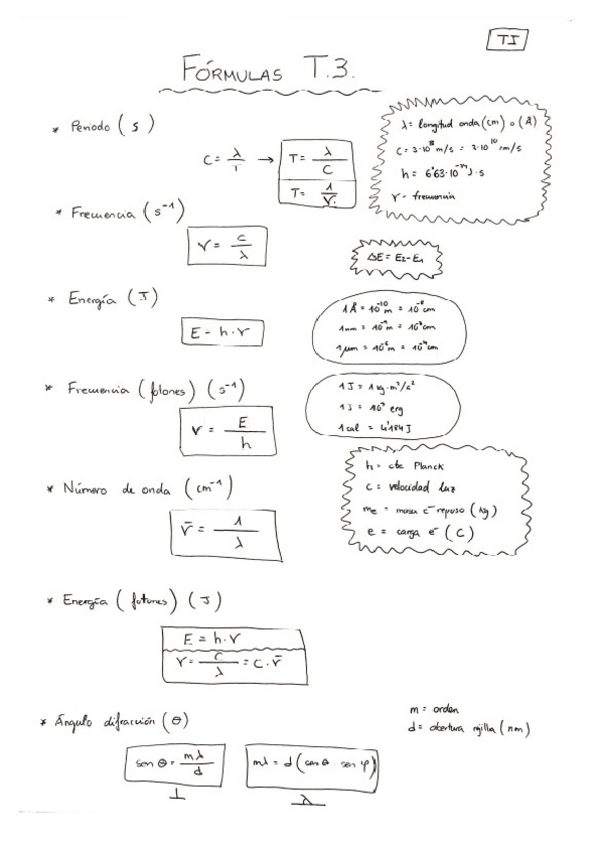 TI
FÓRMULAS T.3.
* Periodo (s)
C = λ/T → T = λ/C
T = 1/ν
λ = longitud onda (cm) o (Å)
C = 3·10⁸ m/s = 3·10¹⁰ cm/s
h = 6'63·10⁻³⁴ J·s
ν = frecuencia
* Frecuencia (s⁻¹)
ν = c/λ
ΔE = E₂-E₁
* Energía (J)
E = h·ν
1Å = 10⁻¹⁰ m = 10⁻⁸ cm
1nm = 10⁻⁹ m = 10⁻⁷ cm
1μm = 10⁻⁶ m = 10⁻⁴ cm
* Frecuencia (fotones) (s⁻¹)
ν = E/h
1J = 1 kg·m²/s²
1J = 10⁷ erg
1cal = 4'184 J
* Número de onda (cm⁻¹)
ν̄ = 1/λ
h = cte Planck
c = velocidad luz
me = masa e⁻ reposo (kg)
e = carga e⁻ (C)
* Energía (fotones) (J)
E = h·ν
ν = c/λ = C·ν̄
* Ángulo difracción (θ)
m = orden
d = abertura rejilla (nm)
sen θ = mλ/d
mλ = d( θ sen φ)
⊥